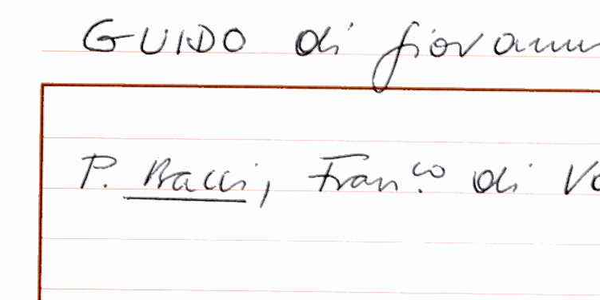 GUIDO di Giovann
P. Bacci, Fran.co di Vo